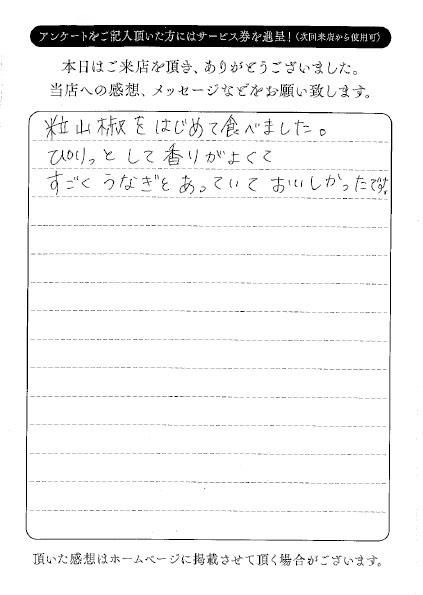 アンケートをご記入頂いた方にはサービス券を進呈！（次回来店から使用可）
本日はご来店を頂き、ありがとうございました。
当店への感想、メッセージなどをお願い致します。
粒山椒をはじめて食べました。
ぴりっとして香りがよくて
すごくうなぎとあっていておいしかったです。
頂いた感想はホームページに掲載させて頂く場合がございます。